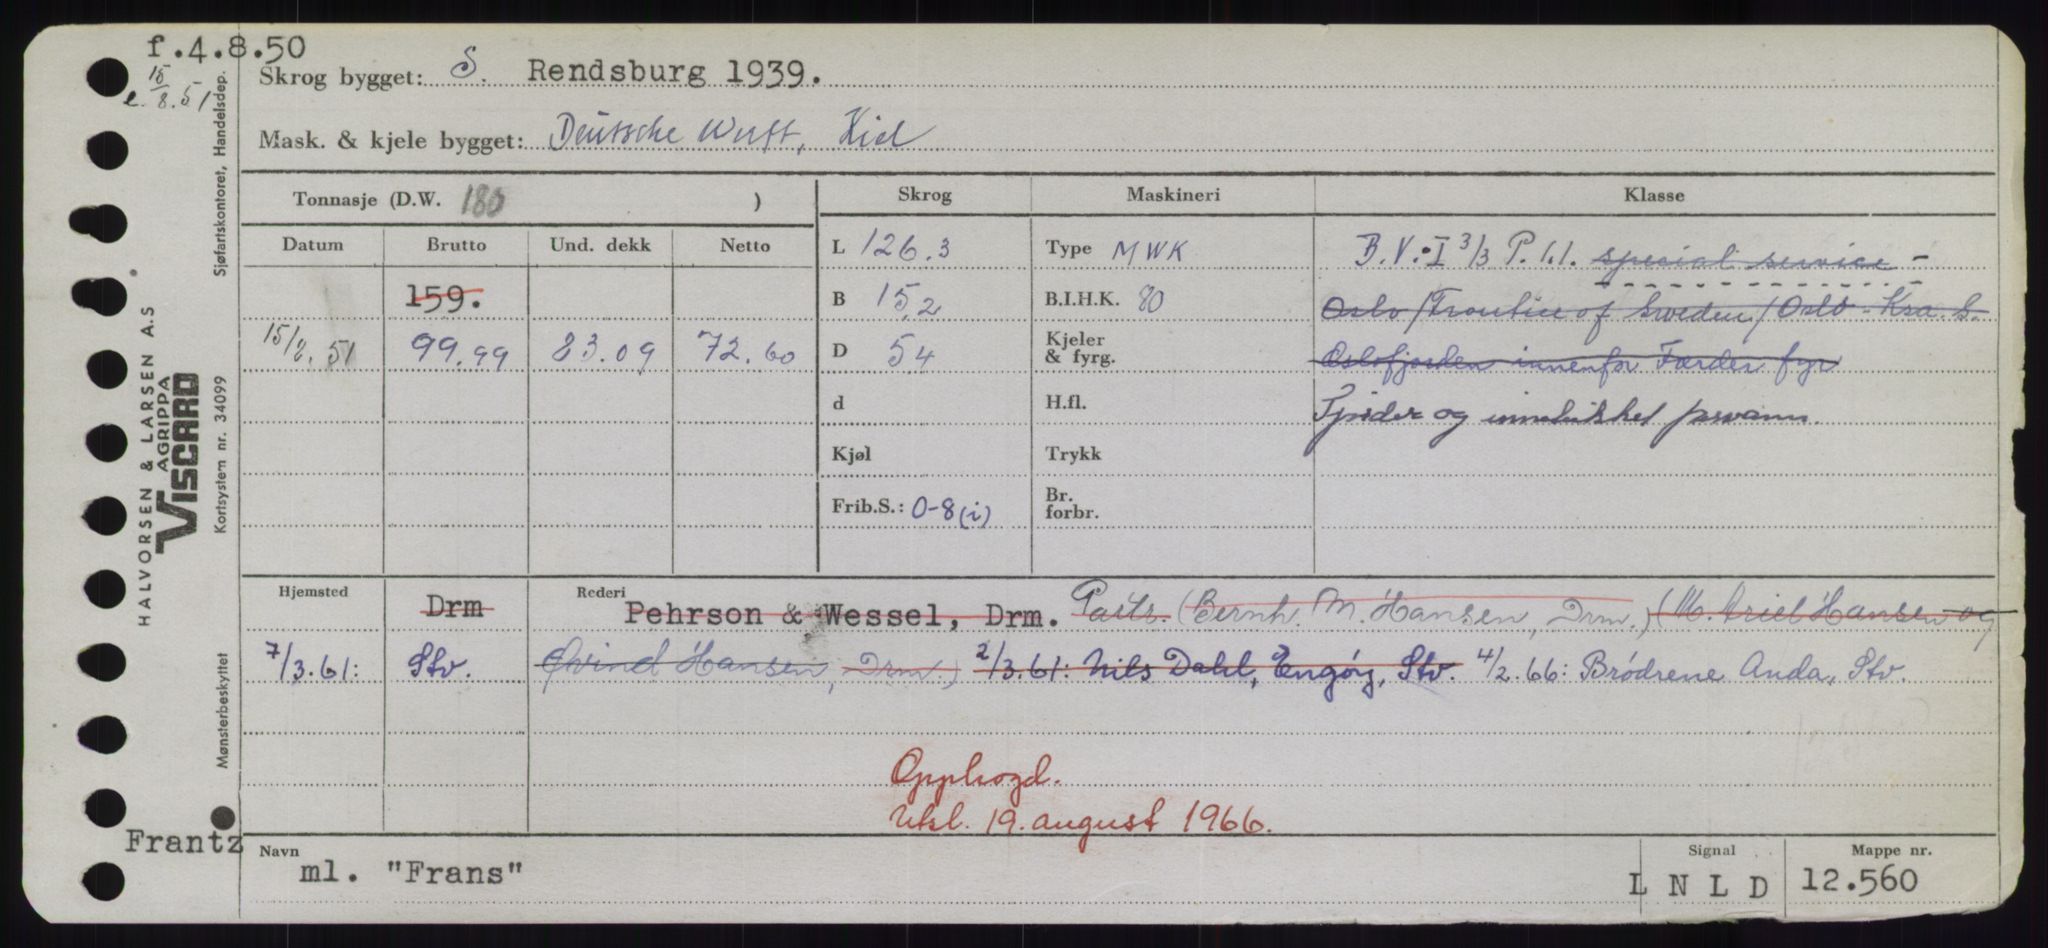 f.4.8.50
e. 15/8.51
Skrog bygget: S. Rendsburg 1939.
Mask. & kjele bygget: Deutsche Werft, Kiel
Tonnasje (D.W. 180 )
Skrog Maskineri Klasse
Datum Brutto Und. dekk Netto
L 126.3 Type MWK B.V. I 3/3 P. h.l. special service -
159. B 15,2 B.I.H.K. 80 Oslo/Frontier of Sweden/Oslo - Krs. S.
15/8.51 99.99 83.09 72.60 D 54 Kjeler & fyrg. Oslofjorden innenfor Færder fyr
d H.fl. Fjorder og innelukket farvann.
Kjøl Trykk
Frib.S.: 0-8(i) Br. forbr.
Hjemsted Rederi
Drm Pehrson & Wessel, Drm. Partr. (Bernh. M. Hansen, Drm.) (M. Ariel Hansen og
7/3.61: Stv. Øivind Hansen, Drm.) 2/3.61: Nils Dahl, Engøy, Stv. 4/2.66: Brødrene Anda, Stv.
Opphogd.
Utsl. 19. august 1966.
Frantz
Navn Signal Mappe nr.
ml. "Frans" L N L D 12.560
HALVORSEN & LARSEN A.S
AGRIPPA
VISCARD
Sjøfartskontoret, Handelsdep.
Kortsystem nr. 34099
Mønsterbeskyttet